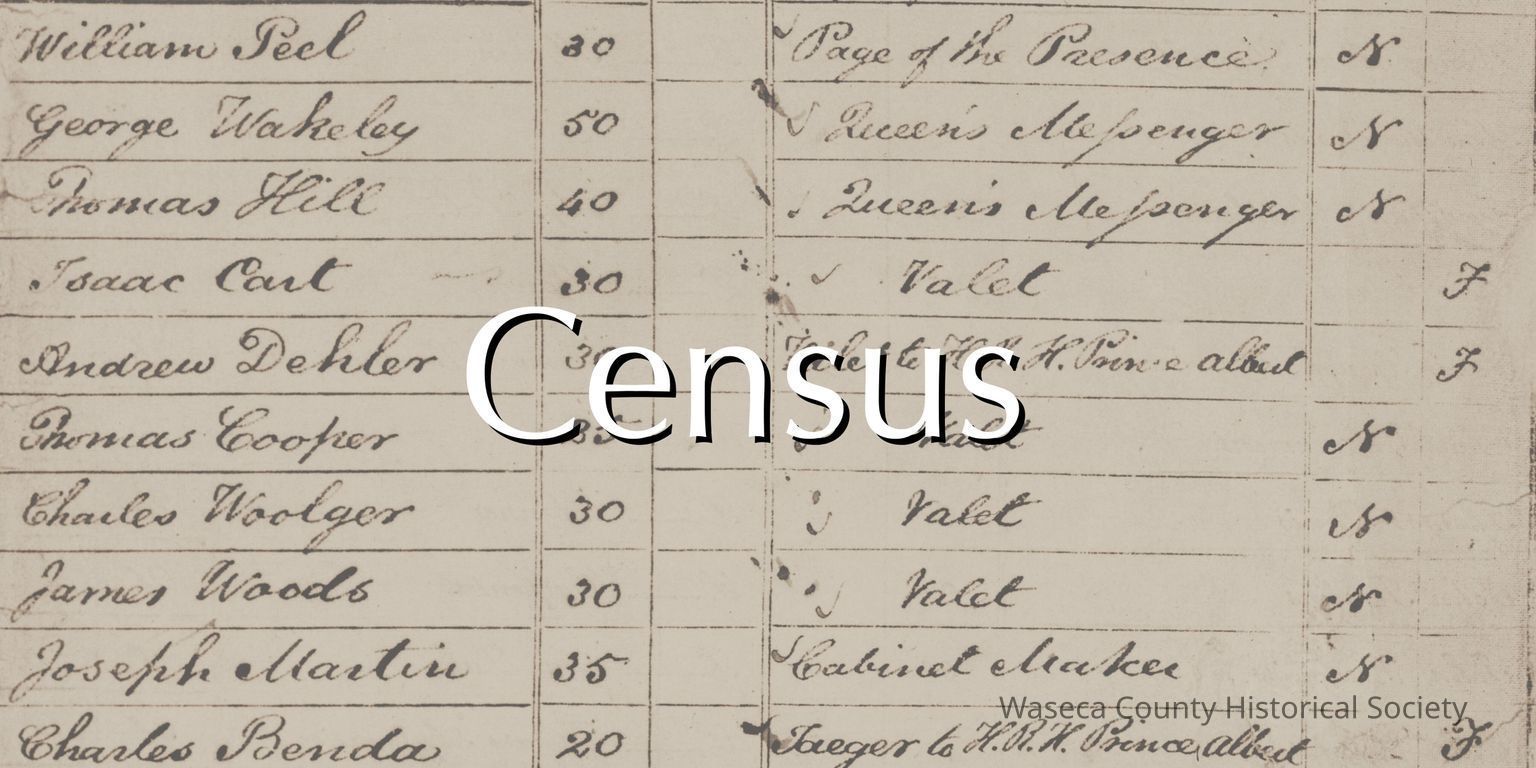 William Peel 30 Page of the Presence N
George Wakeley 50 Queen's Messenger N
Thomas Hill 40 Queen's Messenger N
Isaac Cart 30 Valet F
Andrew Dehler 30 Valet to H.R.H. Prince Albert F
Census
Thomas Cooper 35 Valet N
Charles Woolger 30 Valet N
James Woods 30 Valet N
Joseph Martin 35 Cabinet Maker N
Waseca County Historical Society
Charles Benda 20 Jaeger to H.R.H. Prince Albert F